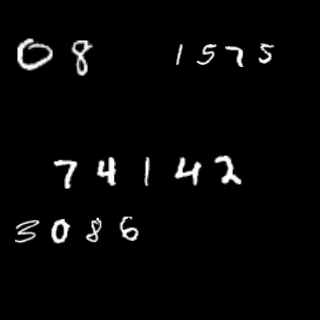 08 1575
74142
3086